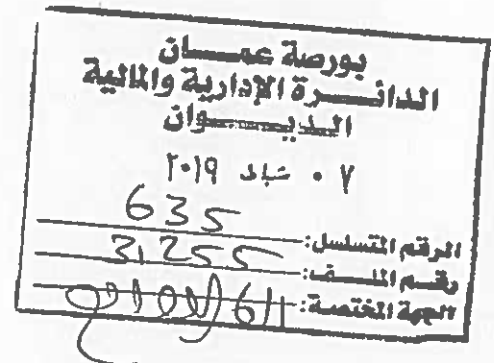 بورصة عمــــان
الدائــــرة الإدارية والمالية
الديــــوان
٠٧ شباط ٢٠١٩
الرقم المتسلسل: 635
رقــم الملــف: 31255
الجهة المختصة: